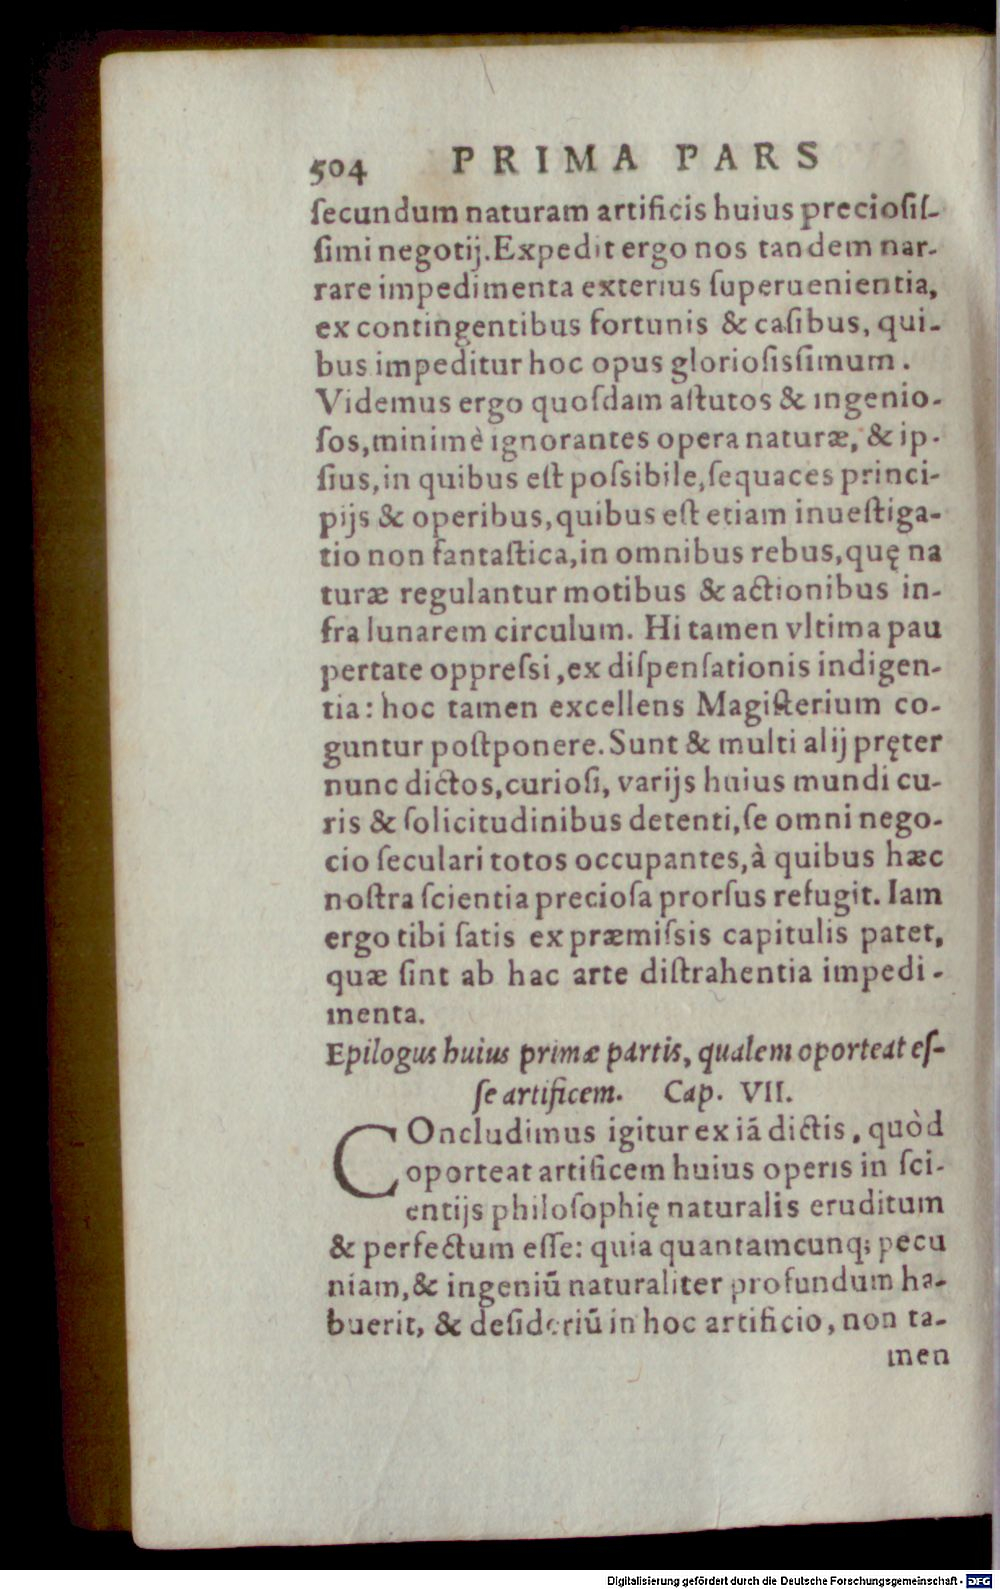 504 PRIMA PARS
ſecundum naturam artificis huius preciosiſ-
ſimi negotij. Expedit ergo nos tandem nar-
rare impedimenta exterius ſuperuenientia,
ex contingentibus fortunis & caſibus, qui-
bus impeditur hoc opus glorioſisſimum.
Videmus ergo quoſdam aſtutos & ingenio-
ſos, minimè ignorantes opera naturæ, & ip-
ſius, in quibus eſt poſsibile, ſequaces princi-
pijs & operibus, quibus eſt etiam inueſtiga-
tio non fantaſtica, in omnibus rebus, quę na
turæ regulantur motibus & actionibus in-
fra lunarem circulum. Hi tamen vltima pau
pertate oppreſsi, ex diſpenſationis indigen-
tia: hoc tamen excellens Magiſterium co-
guntur poſtponere. Sunt & multi alij pręter
nunc dictos, curioſi, varijs huius mundi cu-
ris & ſolicitudinibus detenti, ſe omni nego-
cio ſeculari totos occupantes, à quibus hæc
noſtra ſcientia precioſa prorſus refugit. Iam
ergo tibi ſatis ex præmiſsis capitulis patet,
quæ ſint ab hac arte diſtrahentia impedi-
menta.
Epilogus huius primæ partis, qualem oporteat eſ-
ſe artificem. Cap. VII.
COncludimus igitur ex iā dictis, quòd
oporteat artificem huius operis in ſci-
entijs philoſophię naturalis eruditum
& perfectum eſſe: quia quantamcunq; pecu
niam, & ingeniū naturaliter profundum ha-
buerit, & deſideriū in hoc artificio, non ta-
men
Digitalisierung gefördert durch die Deutsche Forschungsgemeinschaft - DFG